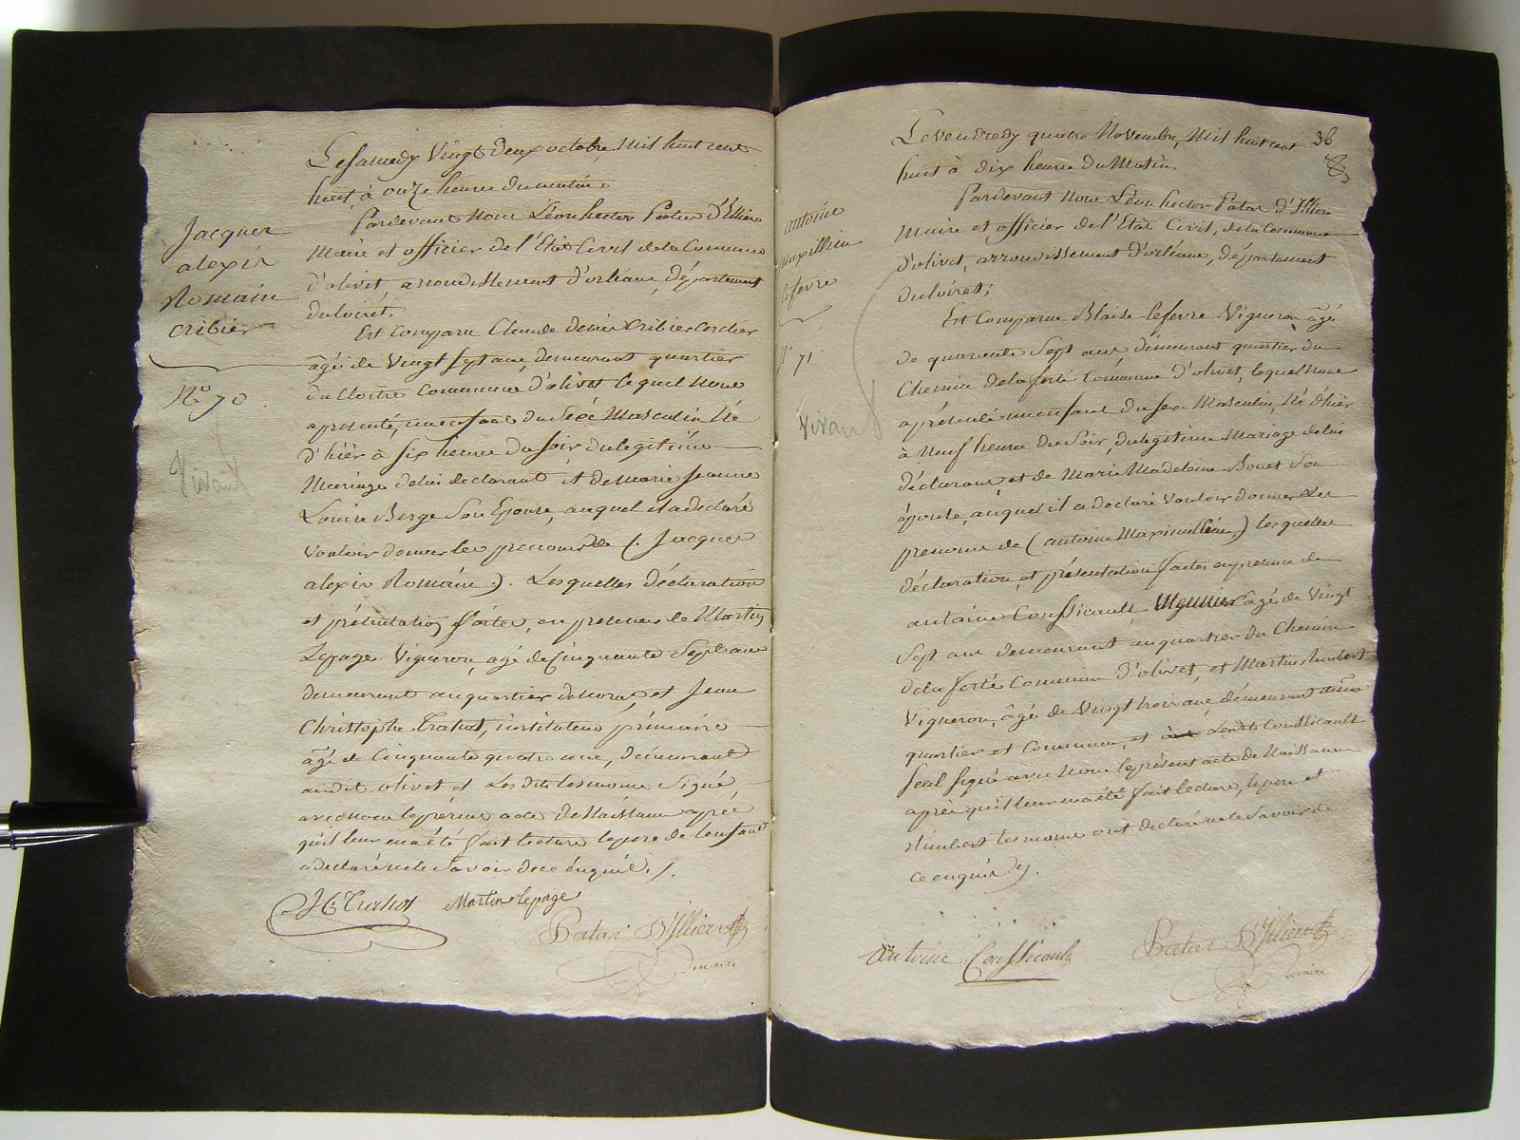 Jacques
alexis
Romain
cribier
N.º 70
Vivant
Le samedy Vingt deux octobre, Mil huit cent
huit, à onze heures du matin.
Pardevant Nous Léon hector Patas d'Illiers
Maire et officier de l'Etat Civil de la Commune
d'olivet, arrondissement d'orléans, département
du loiret.
Est Comparu Claude denis Cribier Cordier
âgé de Vingt sept ans, demeurant quartier
du Cloitre Commune d'olivet lequel Nous
a présenté, un enfant du Sexe Masculin Né
d'hier à six heures du soir du legitime
Mariage de lui declarant et de marie Jeanne
Louise Berge Son Epouse, auquel il a declaré
Vouloir donner les prenoms de (Jacques
alexis Romain). Lesquelles déclaration
et présentation faites, en presence de Martin
Lepage Vigneron, agé de Cinquante Sept ans
demeurant au quartier de et Jean
Christophe Trahot, instituteur primaire
âgé de Cinquante quatre ans, demeurant
audit olivet et Les dits temoins Signé
avec nous le présent acte de Naissance après
qu'il leur en a été fait lecture le pere de l'enfant
a declaré ne le Savoir de ce enquis ./.
JC Trahot Martin lepage
Patas D'Illiers
maire
36
antoine
maximillien
lefevre
N.º 71
Vivant
Le vendredy quatre Novembre, Mil huit cent
huit à dix heures du Matin.
Pardevant Nous Léon hector Patas d'Illiers
Maire et officier de l'Etat Civil, de la Commune
d'olivet, arrondissement d'orléans, département
du loiret;
Est Comparu Blaise lefevre Vigneron âgé
de quarante Sept ans, demeurant quartier du
Chemin de la ferté Commune d'olivet, lequel Nous
a présenté un enfant du sexe Masculin, Né d'hier
à Neuf heures du Soir, du legitime Mariage de lui
déclarant, et de Marie Madelaine Bouet Son
épouse, auquel il a declaré Vouloir donner Les
prenoms de (antoine Maximillien) lesquelles
déclaration, et présentation faites en presence de
antoine Conssicault Meunier âgé de Vingt
Sept ans demeurant au quartier du Chemin
de la ferté Commune d'olivet, et Martin himbert
Vigneron, âgé de Vingt trois ans demeurant
quartier et Commune, et Ledit Conssicault
Seul signé avec Nous le présent acte de Naissance
après qu'il leur en a été fait lecture, le pere et
himbert temoins ont declaré ne le Savoir de
ce enquis ./.
Antoine Conssicault Patas D'Illiers
maire